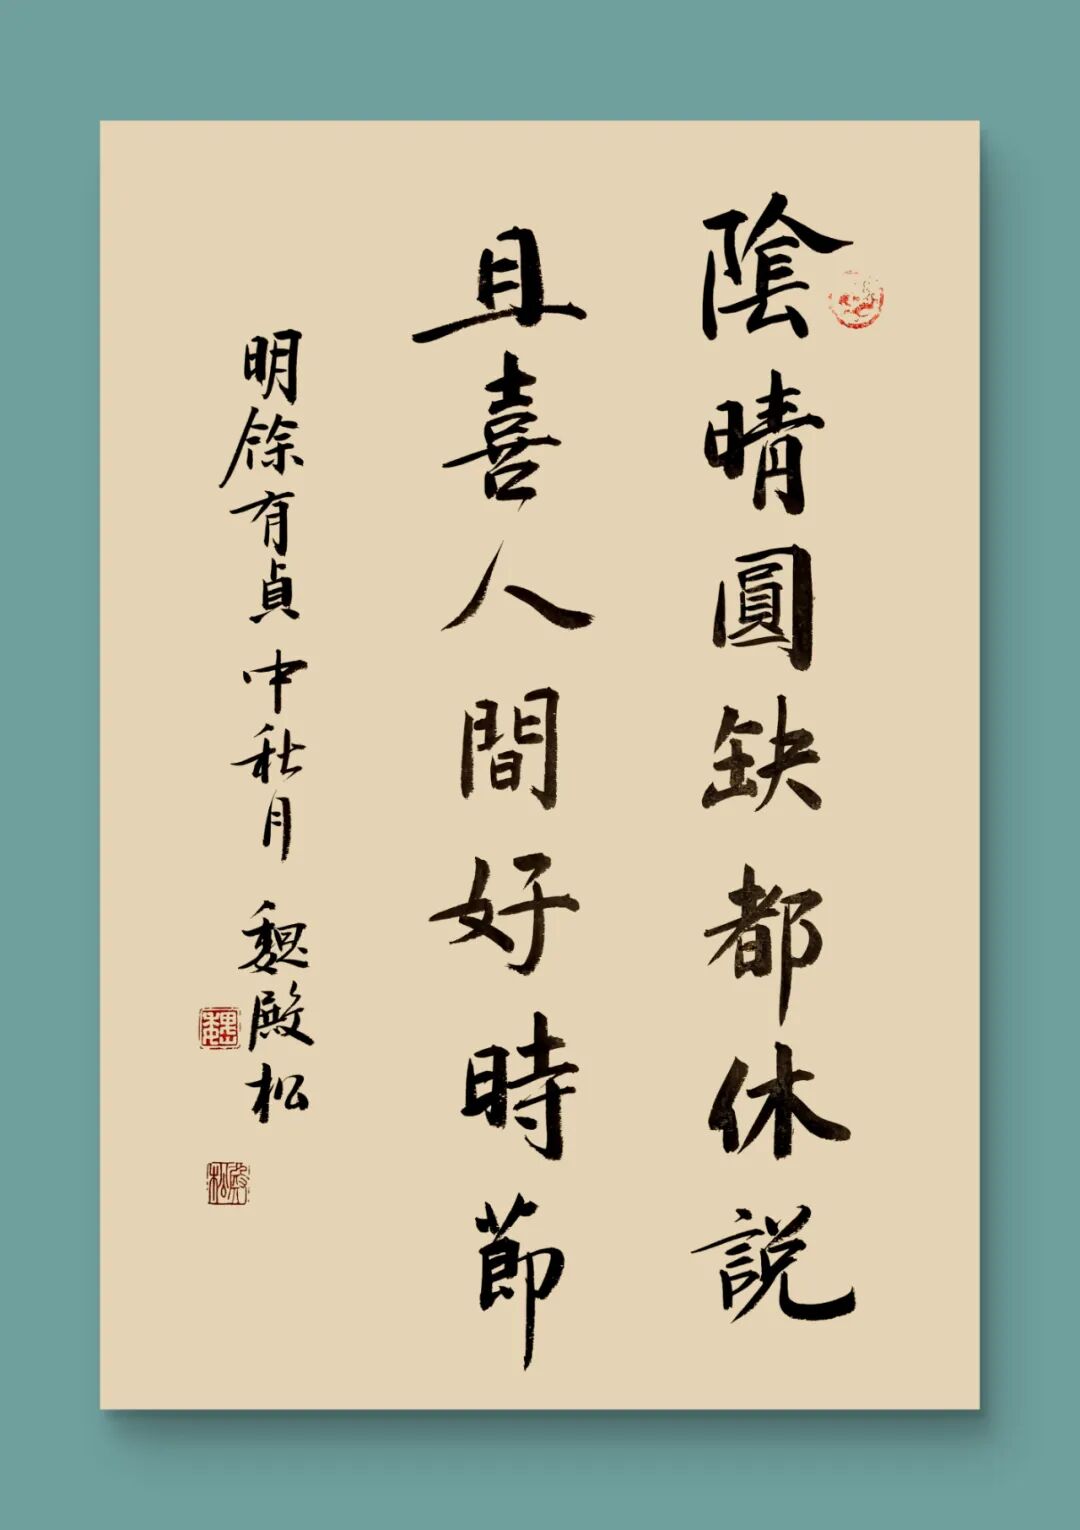 陰晴圓缺都休説
且喜人間好時節
明馀有貞中秋月 魏殿松
魏
殿松